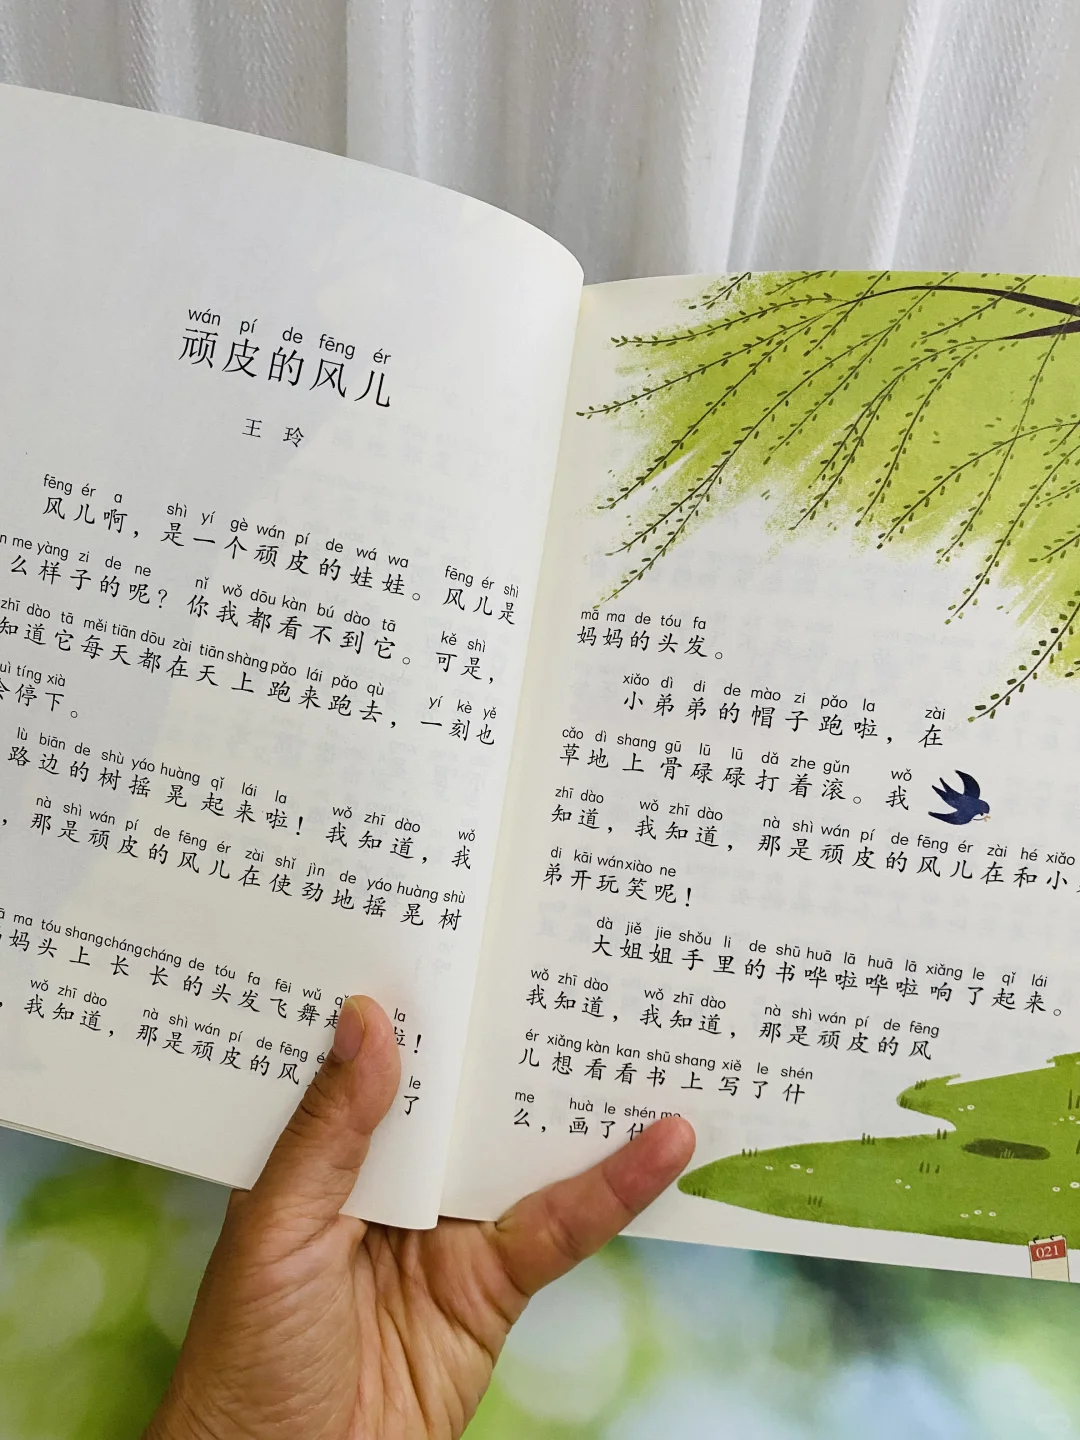 wán pí de fēng ér
顽皮的风儿
王 玲
fēng ér a shì yí gè wán pí de wá wa fēng ér shì
风儿啊，是一个顽皮的娃娃。风儿是
me yàng zi de ne nǐ wǒ dōu kàn bú dào tā kě shì
么样子的呢？你我都看不到它。可是，
zhī dào tā měi tiān dōu zài tiān shàng pǎo lái pǎo qù yí kè yě
知道它每天都在天上跑来跑去，一刻也
tíng xià
停下。
lù biān de shù yáo huàng qǐ lái la wǒ zhī dào wǒ
路边的树摇晃起来啦！我知道，我
nà shì wán pí de fēng ér zài shǐ jìn de yáo huàng shù
，那是顽皮的风儿在使劲地摇晃树
ma tóu shang cháng cháng de tóu fa fēi wǔ la
妈头上长长的头发飞舞 啦！
wǒ zhī dào nà shì wán pí de fēng le
，我知道，那是顽皮的风 了
mā ma de tóu fa
妈妈的头发。
xiǎo dì di de mào zi pǎo la zài
小弟弟的帽子跑啦，在
cǎo dì shang gū lū lū dǎ zhe gǔn wǒ
草地上骨碌碌打着滚。我
zhī dào wǒ zhī dào nà shì wán pí de fēng ér zài hé xiǎo
知道，我知道，那是顽皮的风儿在和小
di kāi wán xiào ne
弟开玩笑呢！
dà jiě jie shǒu li de shū huā lā huā lā xiǎng le qǐ lái
大姐姐手里的书哗啦哗啦响了起来。
wǒ zhī dào wǒ zhī dào nà shì wán pí de fēng
我知道，我知道，那是顽皮的风
ér xiǎng kàn kan shū shang xiě le shén
儿想看看书上写了什
me huà le shén me
么，画了什
021